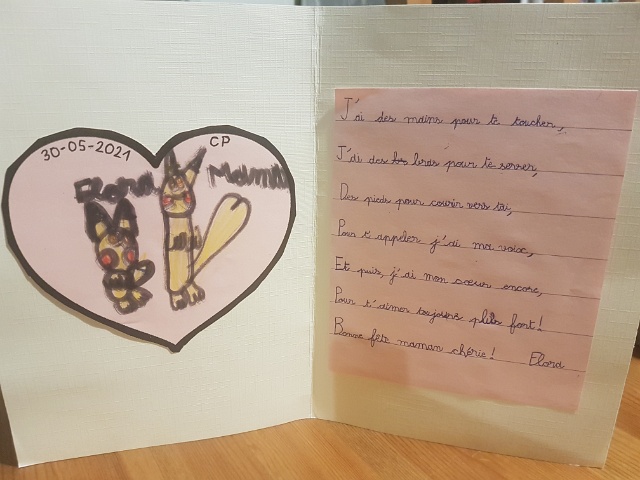 30-05-2021
CP
Elora
Maman
J'ai des mains pour te toucher,
J'ai des bras pour te serrer,
Des pieds pour courir vers toi,
Pour t'appeler j'ai ma voix,
Et puis, j'ai mon cœur encore,
Pour t'aimer toujours plus fort!
Bonne fête maman chérie! Elora